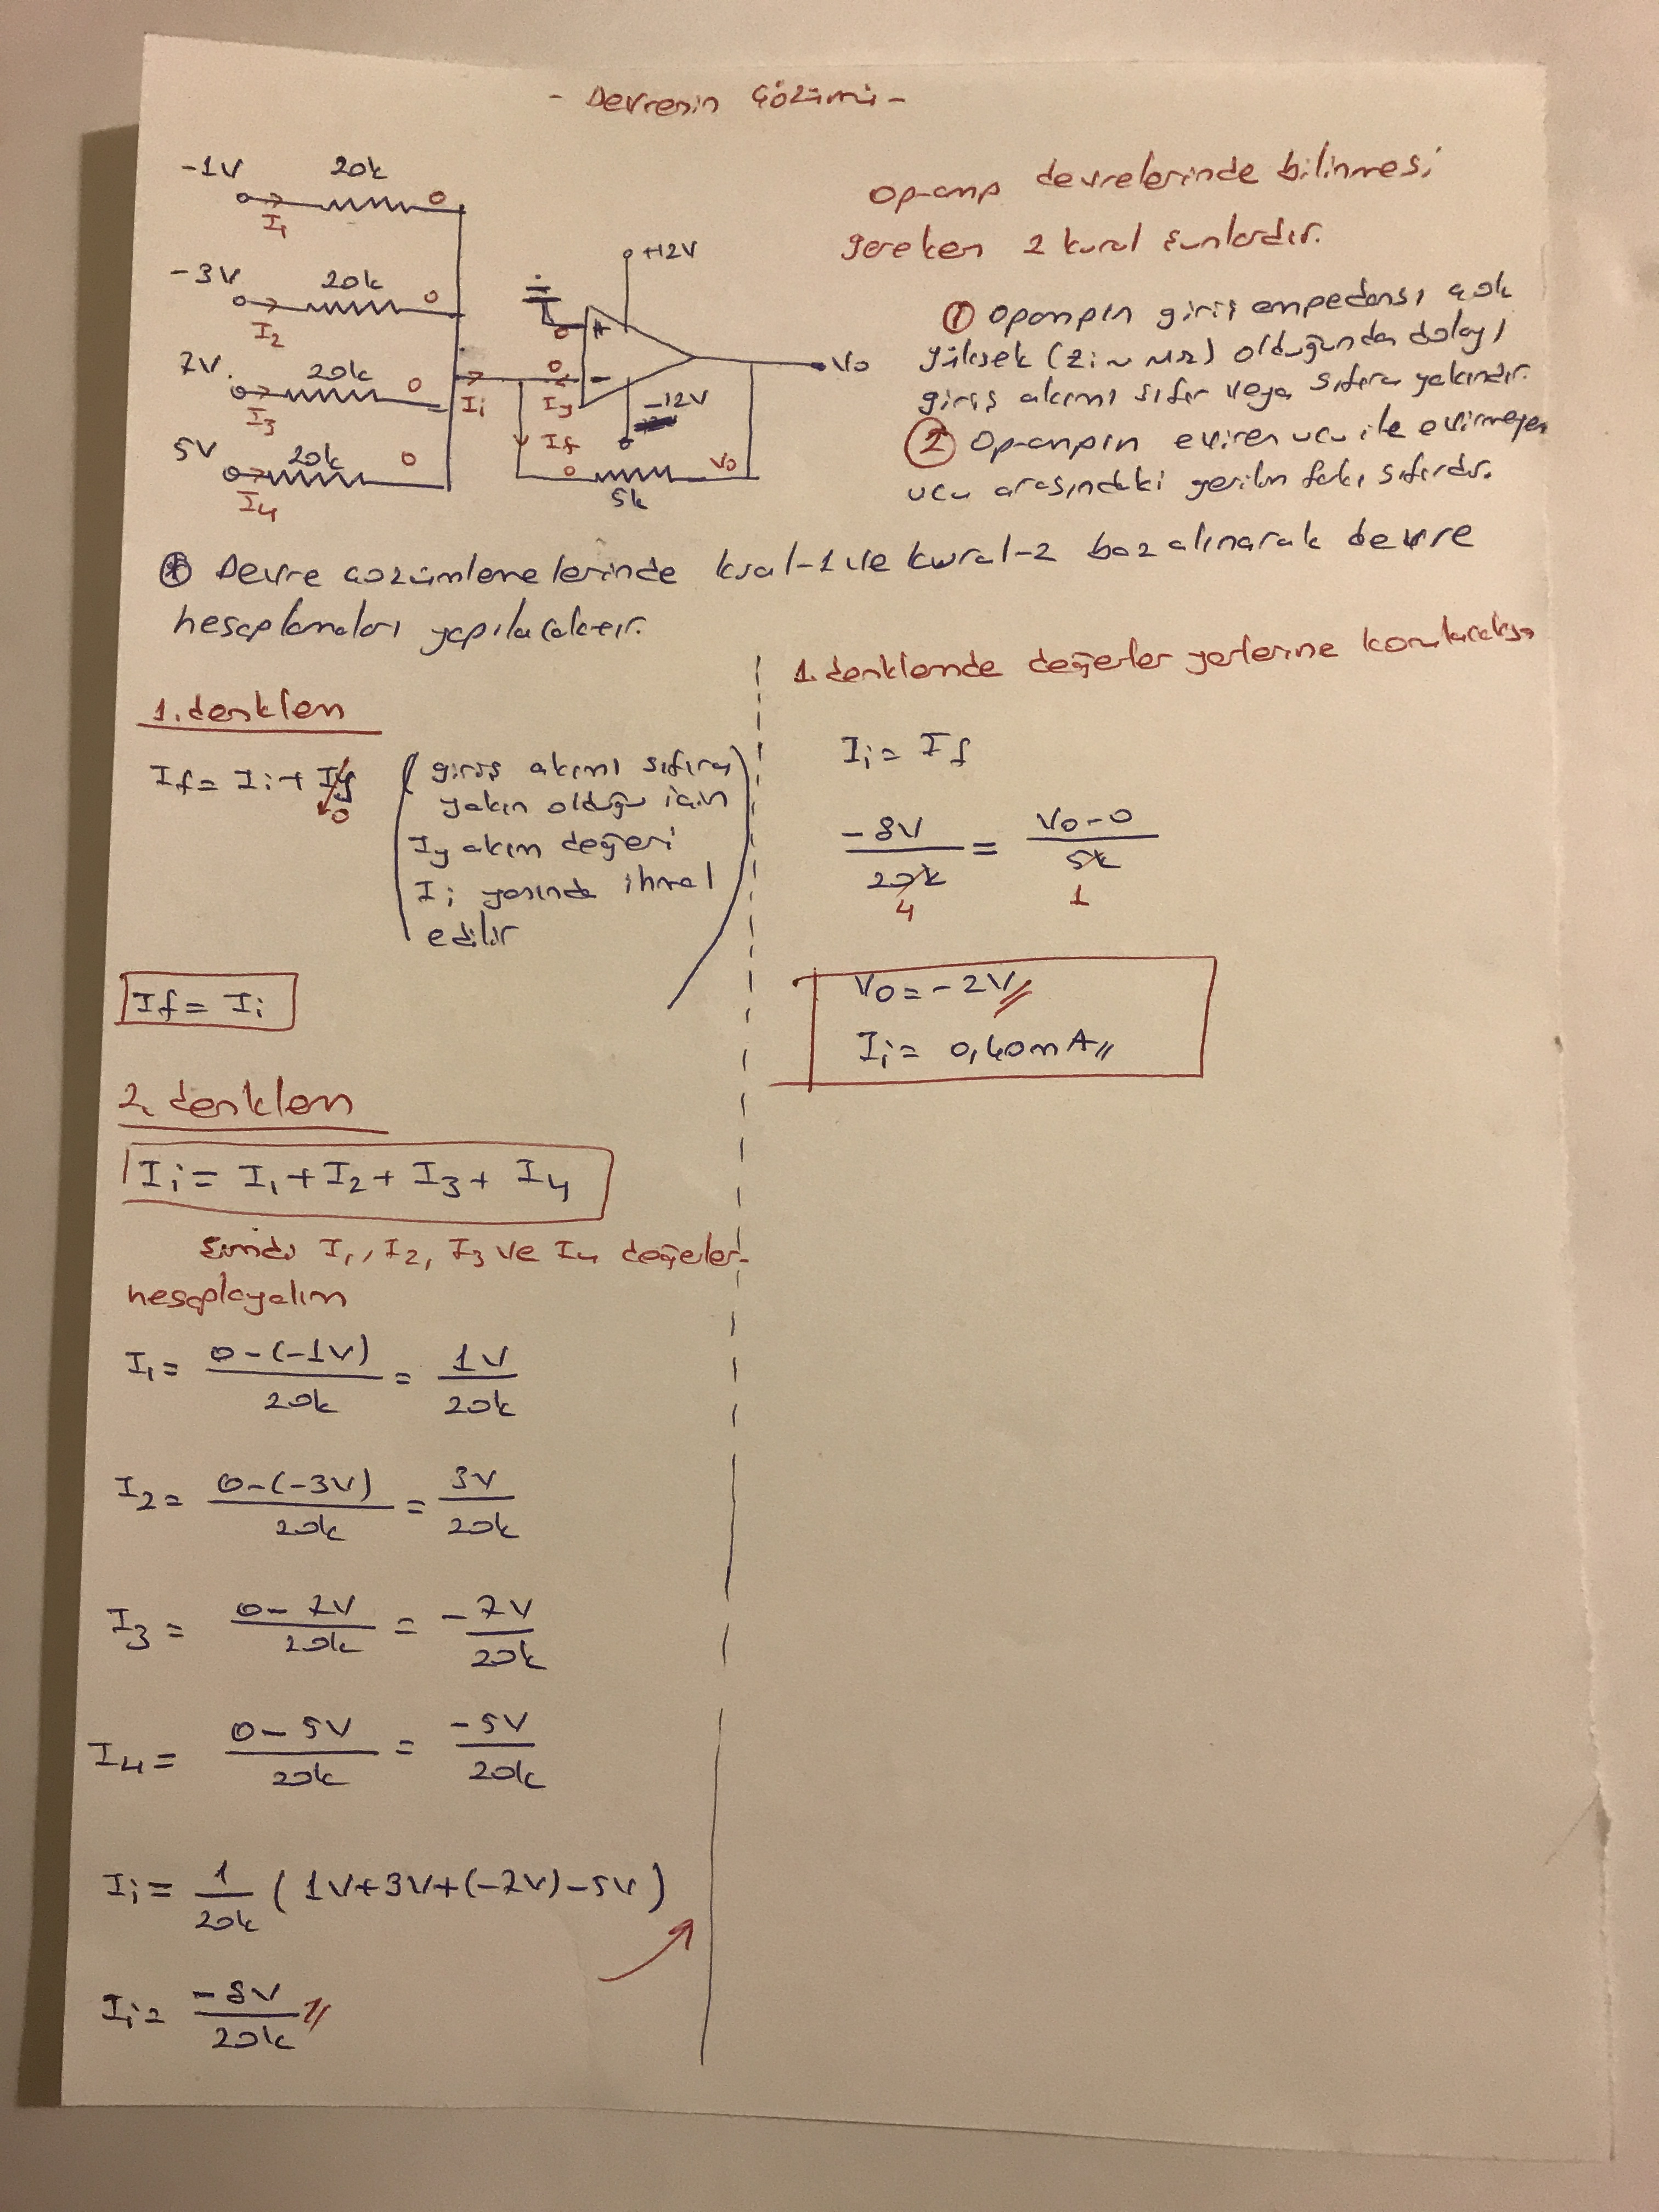 - Devrenin Çözümü -
-1V 20k 0
I1
-3V 20k 0
I2
7V. 20k 0
I3
5V 20k 0
I4
+12V
0 +
0 -
Ii Iy
-12V
Vo
If
0 Vo
5k
Op-amp devrelerinde bilinmesi
gereken 2 kural şunlardır.
① Opampın giriş empedansı çok
yüksek (Zi ~ MΩ) olduğundan dolayı
giriş akımı sıfır veya sıfıra yakındır.
② Op-ampın eviren ucu ile evirmeyen
ucu arasındaki gerilim farkı sıfırdır.
* Devre çözümlemelerinde kural-1 ve kural-2 baz alınarak devre
hesaplamaları yapılacaktır.
1. denklem
If = Ii + Iy
0
(giriş akımı sıfıra
yakın olduğu için
Iy akım değeri
Ii yanında ihmal
edilir)
If = Ii
2. denklem
Ii = I1 + I2 + I3 + I4
Şimdi I1, I2, I3 ve I4 değerler
hesaplayalım
I1 = 0-(-1V)/20k = 1V/20k
I2 = 0-(-3V)/20k = 3V/20k
I3 = 0-7V/20k = -7V/20k
I4 = 0-5V/20k = -5V/20k
Ii = 1/20k (1V+3V+(-7V)-5V)
Ii = -8V/20k //
1. denklemde değerler yerlerine konulacaksa
Ii = If
-8V/20k = Vo-0/5k
4 1
Vo = -2V //
Ii = 0,40mA //